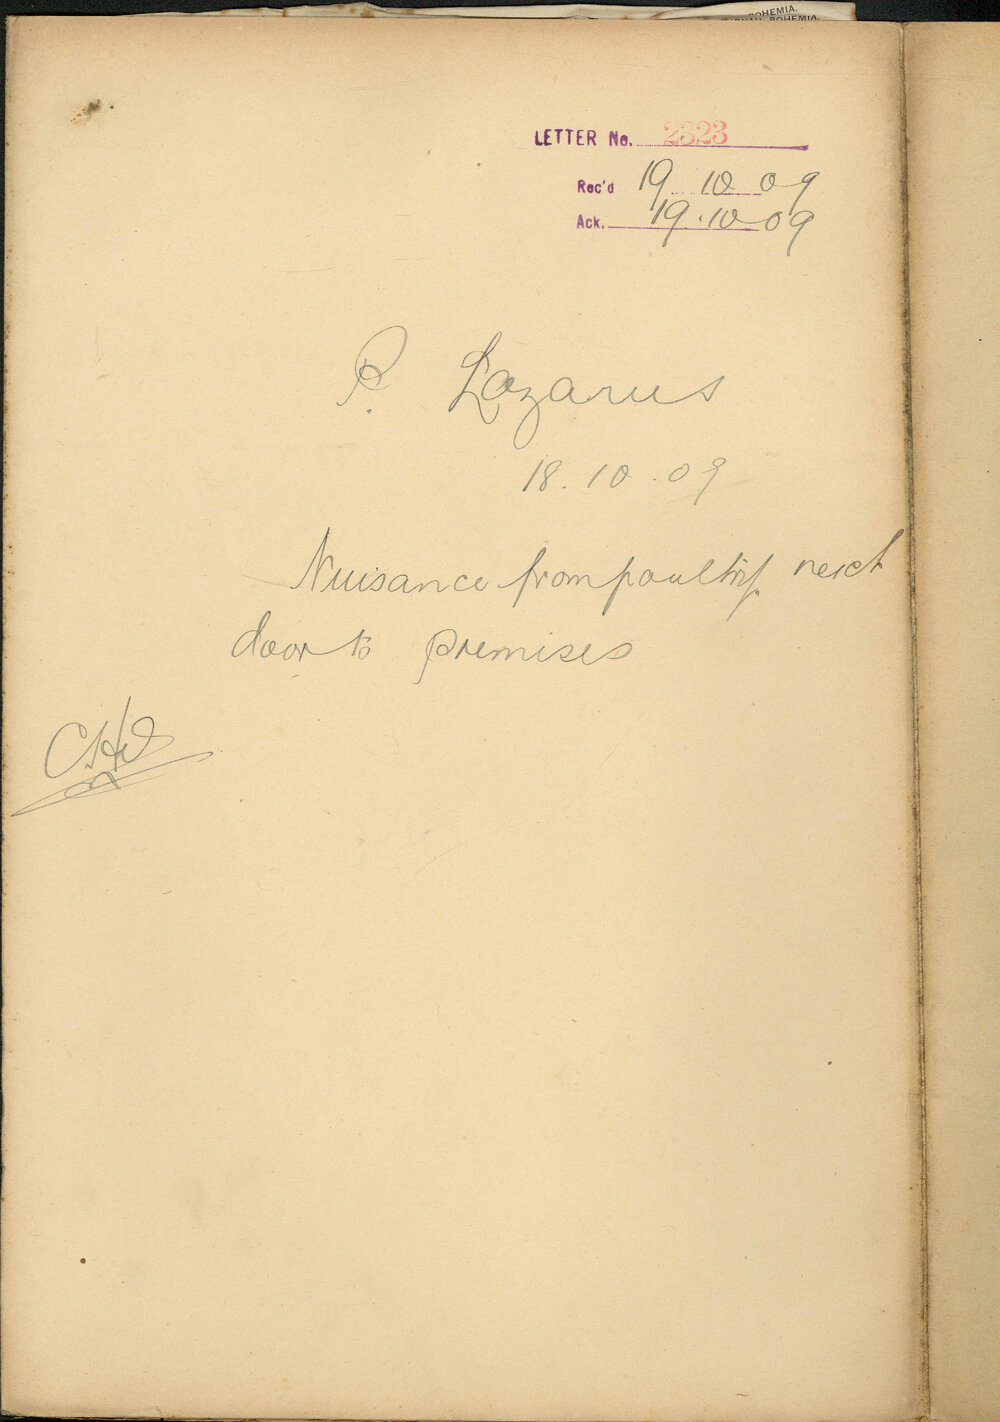 BOHEMIA.
BOHEMIA.
LETTER No. 2323
Rec'd 19 10 09
Ack. 19.10 09
P. Lazarus
18.10.09
Nuisance from poultry next
door to premises